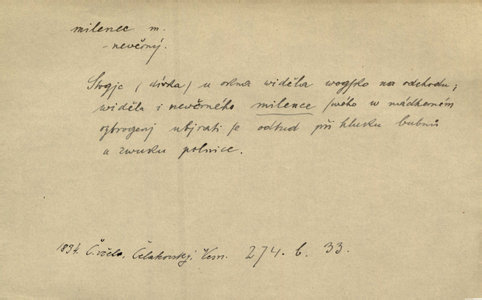 milenec m.
- nevěrný.
Stogje (dívka) u okna widěla wogsko na odchodu;
widěla i newěrného milence swého w nádherném
ozbrogenj ubjrati se odtud při hluku bubnů
a zwuku polnice.
1834. Č. včela, Čelakovský, Kem. 274. b. 33.